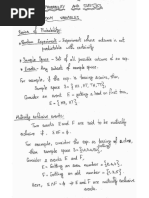 PROBABILITY AND STATISTICS
RANDOM VARIABLES
Basics of Probability:
Random Experiment - Experiment whose outcome is not
predictable with certainty.
Sample Space - Set of all possible outcomes of an exp.
Event - Any subset of sample space.
For example, if the exp. is tossing a coin,
then, Sample space S =
Consider an event E = getting a head on first toss
E = {HH, HT}
Mutually exclusive events:
Two events E and F are said to be mutually
exclusive if E∩F = ∅
For example, Consider the exp. as tossing a
then, Sample space S = {1,2,3,4,5,6}
Consider 2 events E and F.
E = Getting an even number = {2,4,6}
F = Getting an odd number = {1,3,5}
Here, E∩F = ∅ → E and F are mutually
exclusive events.